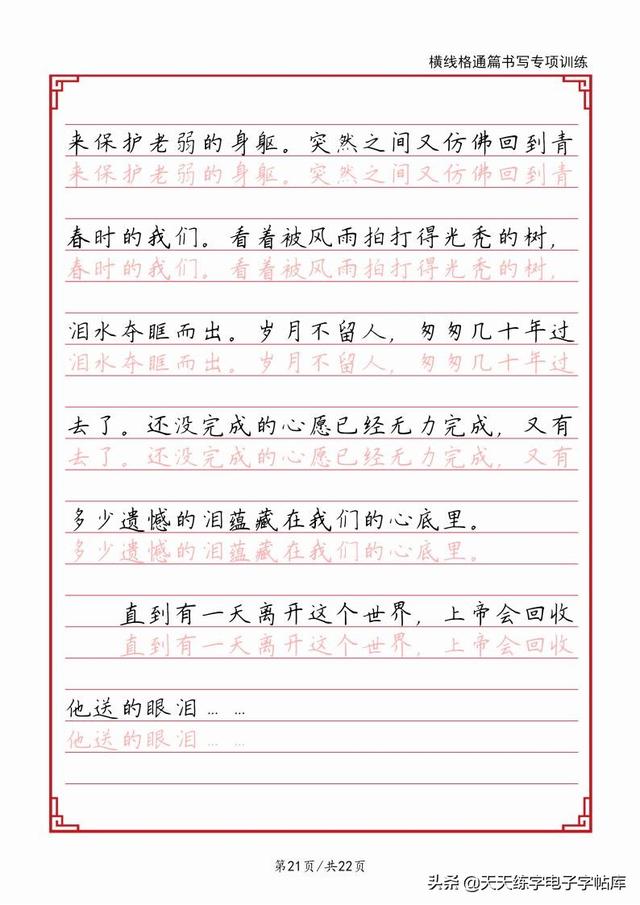 横线格通篇书写专项训练
来保护老弱的身躯。突然之间又仿佛回到青
来保护老弱的身躯。突然之间又仿佛回到青
春时的我们。看着被风雨拍打得光秃的树，
春时的我们。看着被风雨拍打得光秃的树，
泪水夺眶而出。岁月不留人，匆匆几十年过
泪水夺眶而出。岁月不留人，匆匆几十年过
去了。还没完成的心愿已经无力完成，又有
去了。还没完成的心愿已经无力完成，又有
多少遗憾的泪蕴藏在我们的心底里。
多少遗憾的泪蕴藏在我们的心底里。
直到有一天离开这个世界，上帝会回收
直到有一天离开这个世界，上帝会回收
他送的眼泪……
他送的眼泪……
第21页/共22页
头条 @天天练字电子字帖库